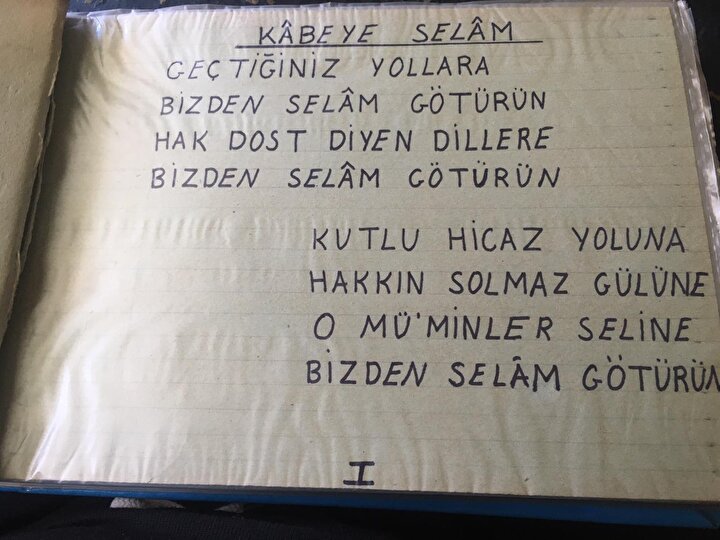 KÂBEYE SELÂM
GEÇTİĞİNİZ YOLLARA
BİZDEN SELÂM GÖTÜRÜN
HAK DOST DİYEN DİLLERE
BİZDEN SELÂM GÖTÜRÜN
KUTLU HİCAZ YOLUNA
HAKKIN SOLMAZ GÜLÜNE
O MÜ'MİNLER SELİNE
BİZDEN SELÂM GÖTÜRÜN
I